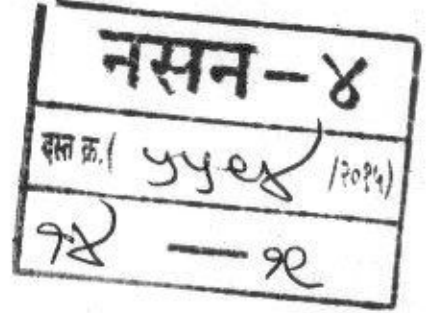 नसन - ४
दस्त क्र. ( ५५९४ /२०१५)
१४ — १९